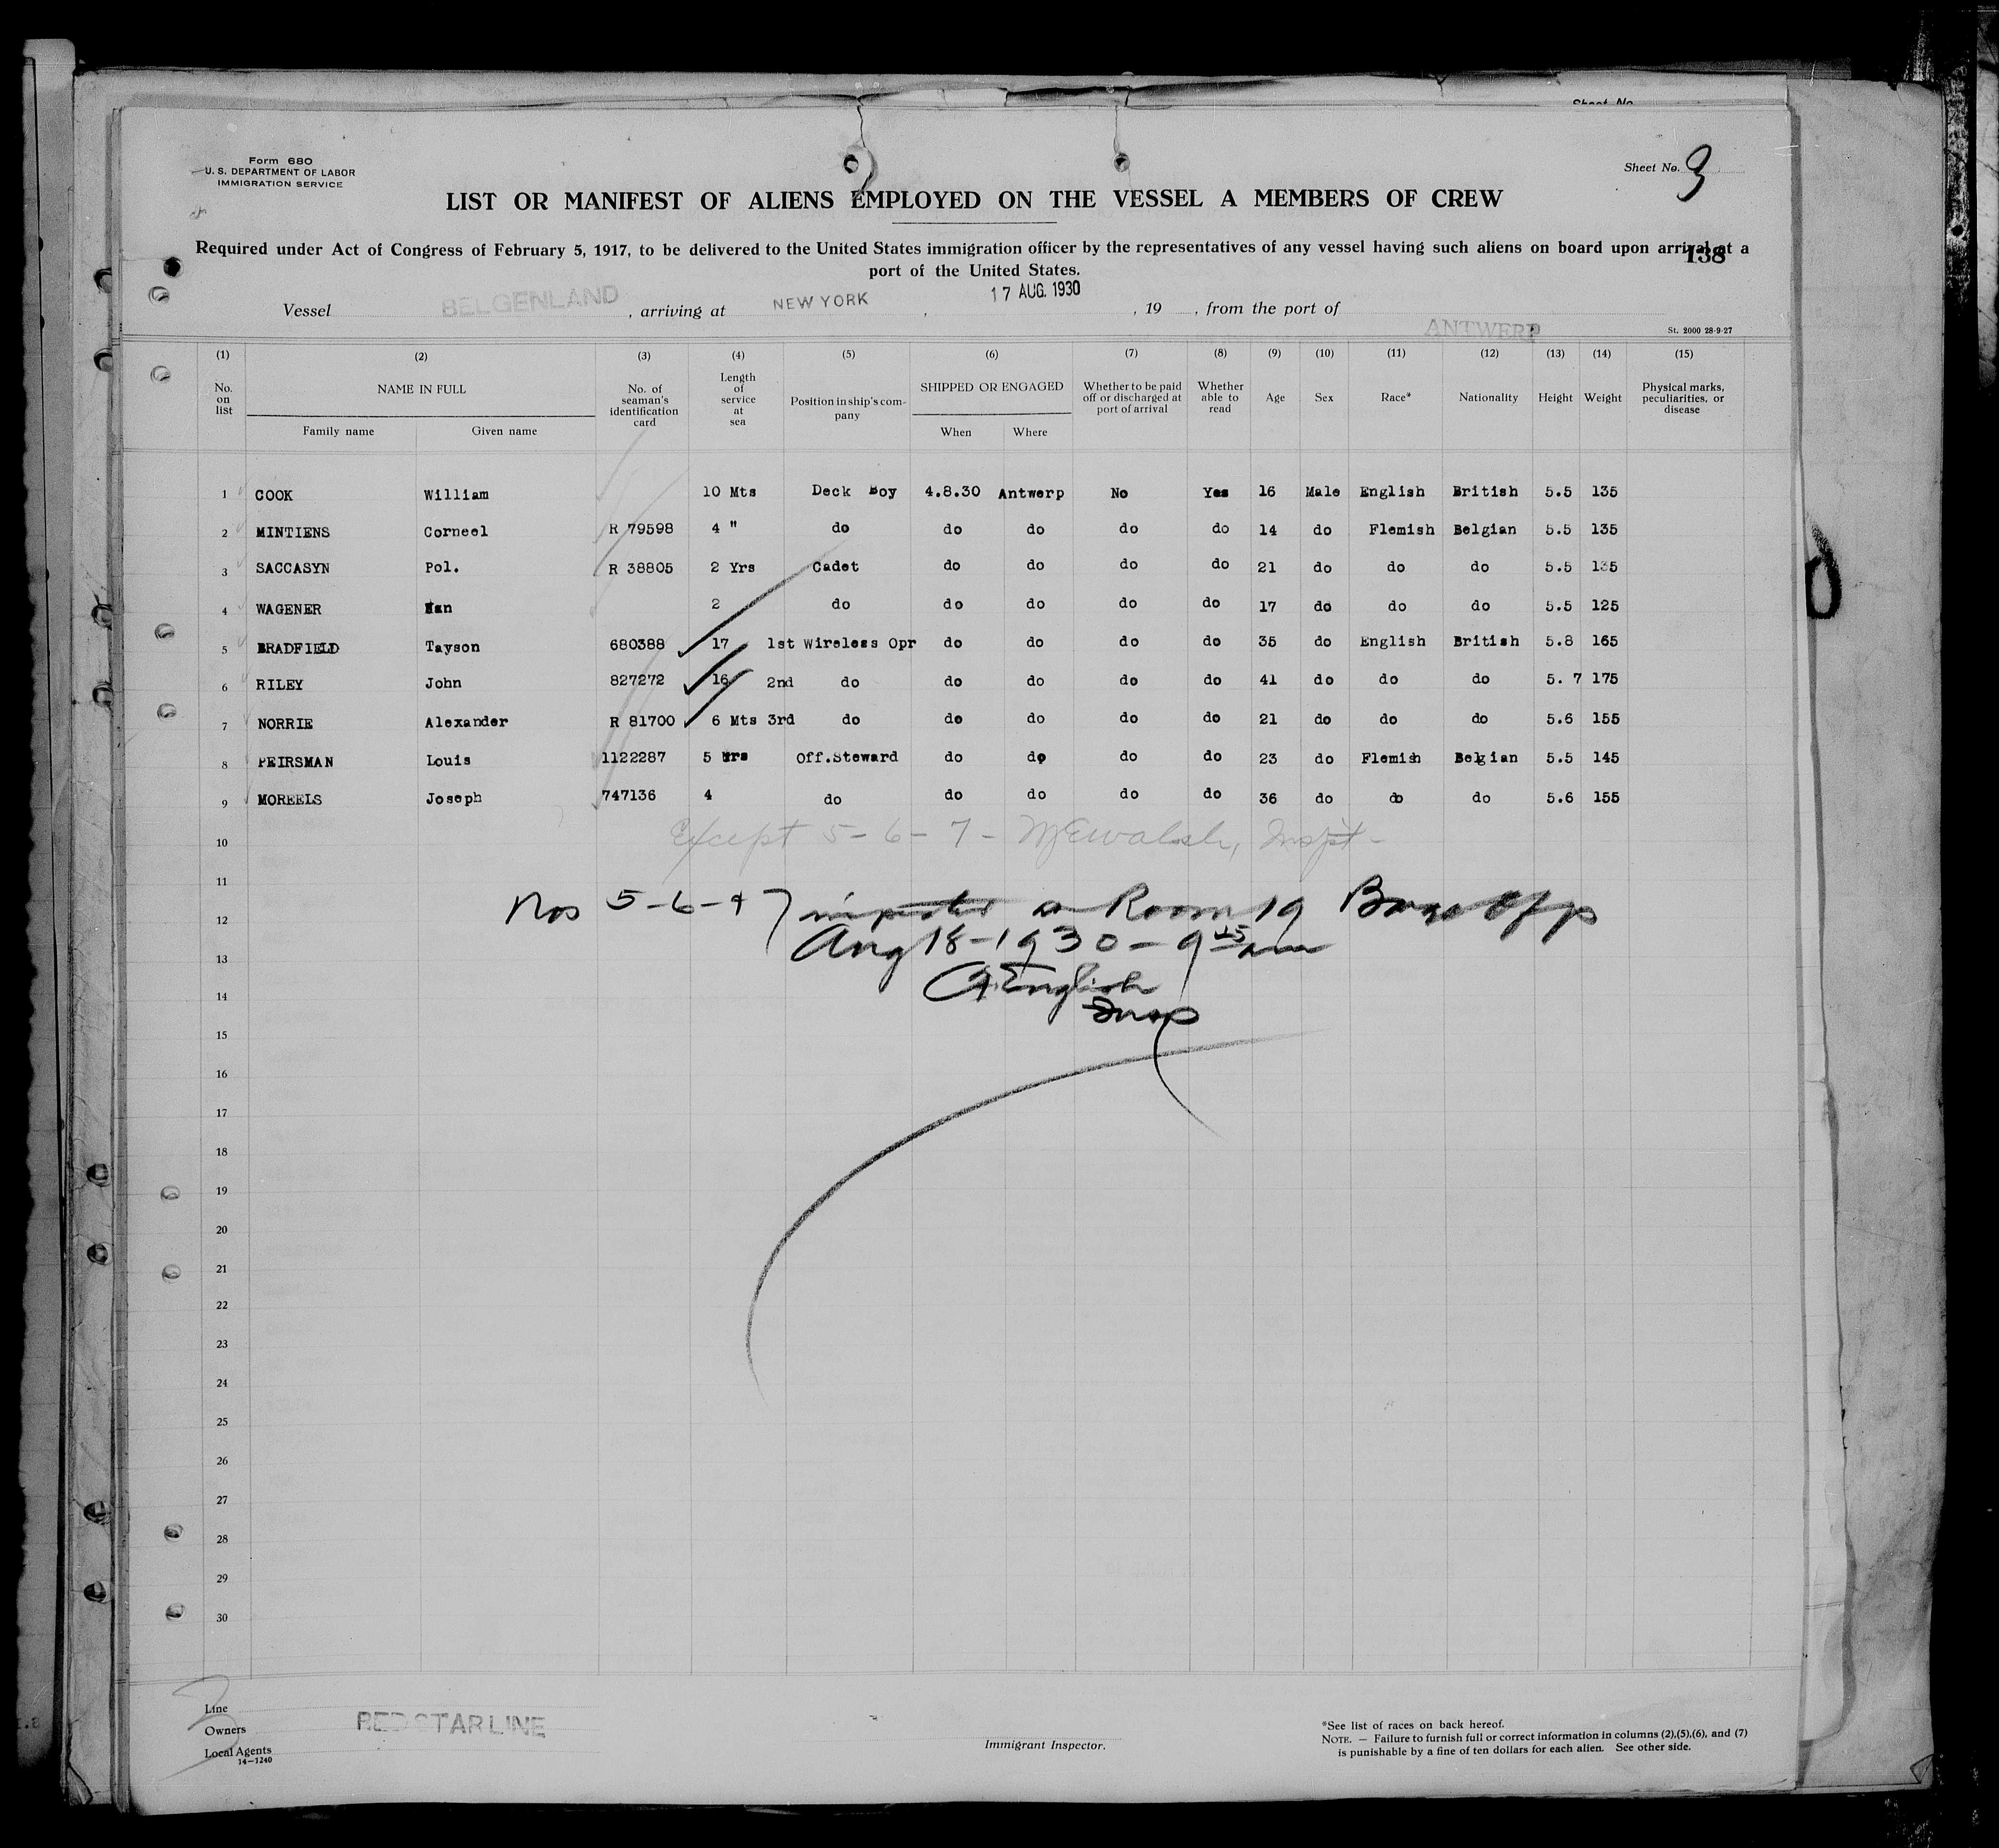 Sheet No.
Form 680
U. S. DEPARTMENT OF LABOR
IMMIGRATION SERVICE
Sheet No. 3
LIST OR MANIFEST OF ALIENS EMPLOYED ON THE VESSEL A MEMBERS OF CREW
Required under Act of Congress of February 5, 1917, to be delivered to the United States immigration officer by the representatives of any vessel having such aliens on board upon arrival at a
138
port of the United States.
Vessel BELGENLAND , arriving at NEW YORK , 17 AUG. 1930 , 19 , from the port of ANTWERP
St. 2000 28-9-27
(1) (2) (3) (4) (5) (6) (7) (8) (9) (10) (11) (12) (13) (14) (15)
No. on list NAME IN FULL Family name Given name No. of seaman's identification card Length of service at sea Position in ship's company SHIPPED OR ENGAGED When Where Whether to be paid off or discharged at port of arrival Whether able to read Age Sex Race* Nationality Height Weight Physical marks, peculiarities, or disease
1 COOK William 10 Mts Deck Boy 4.8.30 Antwerp No Yes 16 Male English British 5.5 135
2 MINTIENS Corneel R 79598 4 " do do do do do 14 do Flemish Belgian 5.5 135
3 SACCASYN Pol. R 38805 2 Yrs Cadet do do do do 21 do do do 5.5 135
4 WAGENER 2 do do do do do 17 do do do 5.5 125
5 BRADFIELD Tayson 680388 17 1st Wireless Opr do do do do 35 do English British 5.8 165
6 RILEY John 827272 16 2nd do do do do do 41 do do do 5.7 175
7 NORRIE Alexander R 81700 6 Mts 3rd do do do do do 21 do do do 5.6 155
8 PEIRSMAN Louis 1122287 5 Yrs Off.Steward do do do do 23 do Flemish Belgian 5.5 145
9 MOREELS Joseph 747136 4 do do do do do 36 do do do 5.6 155
10
Except 5-6-7- Walsh, Inspt-
11
Nos 5-6-+7 inspected in Room 19 Barge Office
12
Aug 18-1930-9 45 am
13
English
14
Insp
15
16
17
18
19
20
21
22
23
24
25
26
27
28
29
30
3
Line
Owners RED STAR LINE
Local Agents
14-1240
Immigrant Inspector.
*See list of races on back hereof.
NOTE. — Failure to furnish full or correct information in columns (2),(5),(6), and (7)
is punishable by a fine of ten dollars for each alien. See other side.